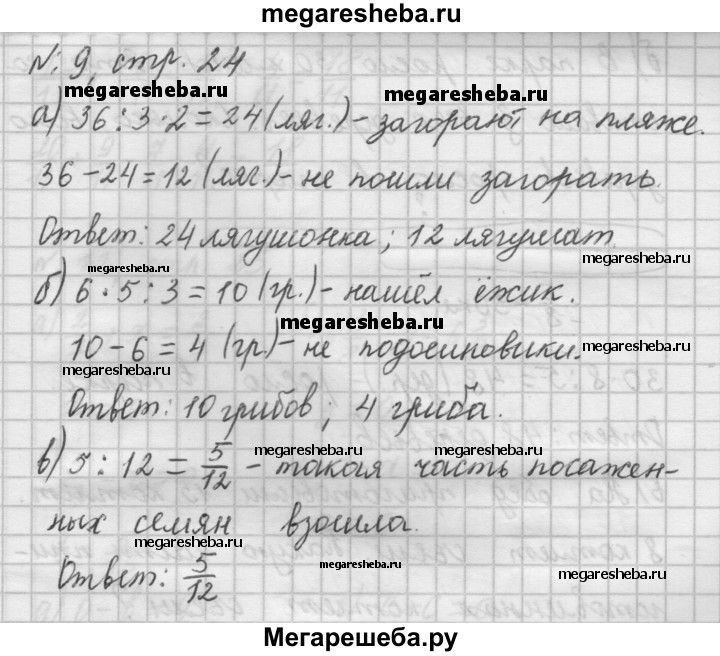 megaresheba.ru
N: 9, стр. 24
megaresheba.ru
megaresheba.ru
а) 36 : 3 · 2 = 24 (ляг.) - загорают на пляже.
36 - 24 = 12 (ляг.) - не пошли загорать.
Ответ: 24 лягушонка; 12 лягушат.
megaresheba.ru
megaresheba.ru
б) 6 · 5 : 3 = 10 (гр.) - нашёл ёжик.
megaresheba.ru
10 - 6 = 4 (гр.) - не подосиновики.
megaresheba.ru
megaresheba.ru
Ответ: 10 грибов; 4 гриба.
megaresheba.ru
megaresheba.ru
в) 5 : 12 = 5/12 - такая часть посажен-
ных семян взошла.
megaresheba.ru
megaresheba.ru
Ответ: 5/12
megaresheba.ru
megaresheba.ru
Мегарешеба.ру